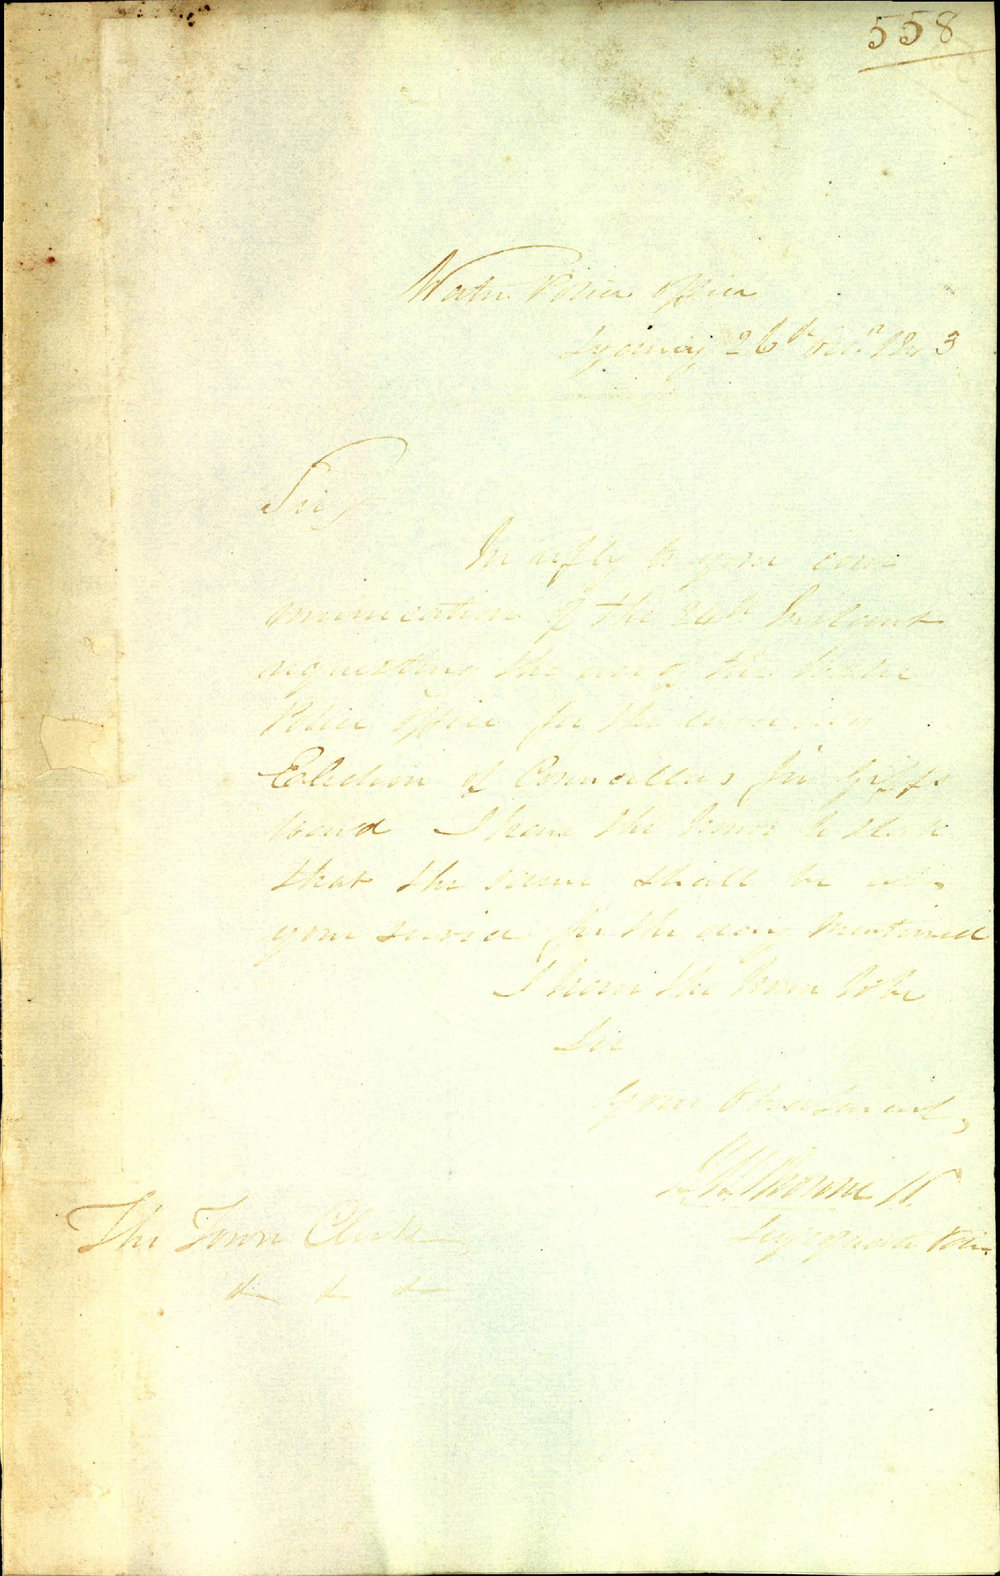 558
Water Police Office
Sydney 26th Octr 1843
Sir
In reply to your com-
munication of the 24th Instant
requesting the use of the Water
Police Office for the
Election of Councillors for Gipps
Ward I have the honor to state
that the same shall be at
your service for the day mentioned
I have the honor to be
Sir
Your Obedt Servant,
The Town Clerk
& & &